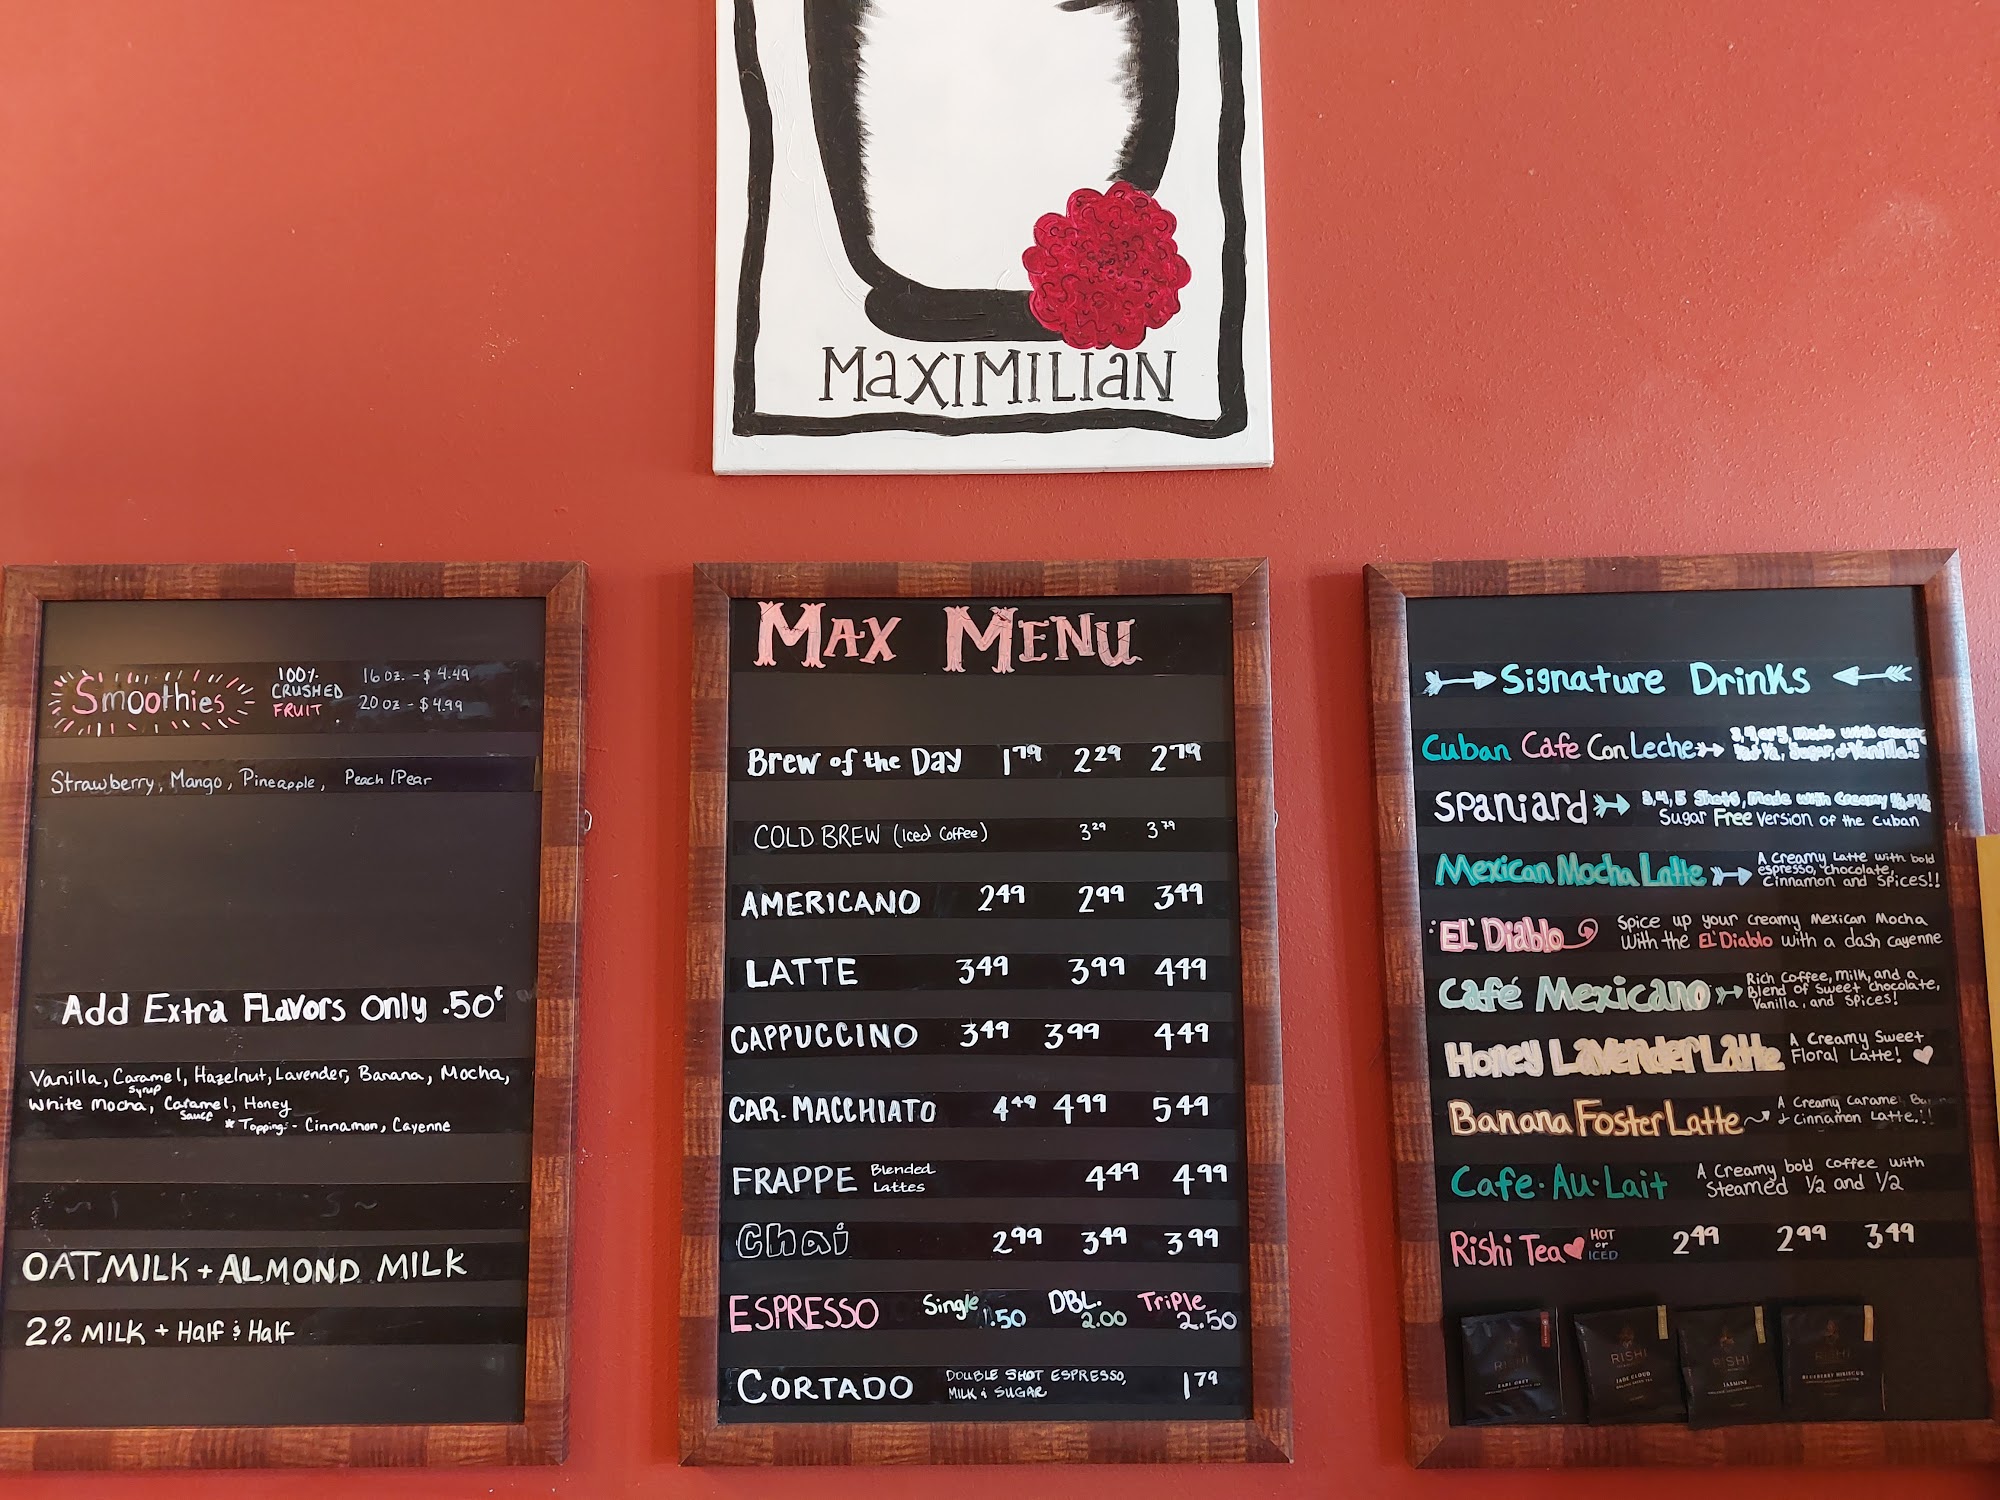 MaXIMILIaN
Smoothies
100%
CRUSHED
FRUIT
16 oz. - $4.49
20 oz - $4.99
Strawberry, Mango, Pineapple, Peach / Pear
Add Extra Flavors Only .50¢
Vanilla, Caramel, Hazelnut, Lavender, Banana, Mocha,
syrup
White Mocha, Caramel, Honey
sauce
* Topping: - Cinnamon, Cayenne
OAT MILK + ALMOND MILK
2% MILK + Half & Half
MAX MENU
Brew of the Day 1.79 2.29 2.79
COLD BREW (Iced Coffee) 3.29 3.79
AMERICANO 2.49 2.99 3.49
LATTE 3.49 3.99 4.49
CAPPUCCINO 3.49 3.99 4.49
CAR. MACCHIATO 4.49 4.99 5.49
FRAPPE Blended Lattes 4.49 4.99
Chai 2.99 3.49 3.99
ESPRESSO Single 1.50 DBL. 2.00 Triple 2.50
CORTADO DOUBLE SHOT ESPRESSO, MILK & SUGAR 1.79
Signature Drinks
Cuban Cafe Con Leche
Sugar, + Vanilla!!
Spaniard 3, 4, 5 Shots, Made with Creamy
Sugar Free Version of the Cuban
Mexican Mocha Latte A Creamy Latte with bold
espresso, chocolate,
Cinnamon and Spices!!
EL' Diablo Spice up your creamy Mexican Mocha
With the EL' Diablo with a dash cayenne
Café Mexicano Rich Coffee, Milk, and a
Blend of Sweet chocolate,
Vanilla, and Spices!
Honey Lavender Latte A Creamy Sweet
Floral Latte!
Banana Foster Latte A Creamy Caramel
+ Cinnamon Latte!!
Cafe·Au·Lait A Creamy bold coffee with
Steamed 1/2 and 1/2
Rishi Tea HOT or ICED 2.49 2.99 3.49
RISHI
EARL GREY
RISHI
JADE CLOUD
RISHI
JASMINE
RISHI
BLUEBERRY HIBISCUS